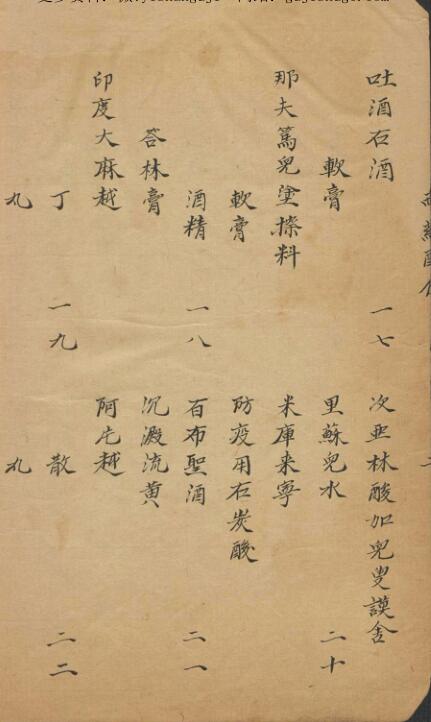 吐酒石酒 一七
軟膏
那夫篤兒塗擦料
軟膏
酒精 一八
答林膏
印度大麻越
丁 一九
丸
次亜林酸加兒叟謨舎
里蘇兒水 二十
米庫来寧
防疫用石炭酸
百布聖酒 二一
沉澱流黄
阿片越
散 二二
丸